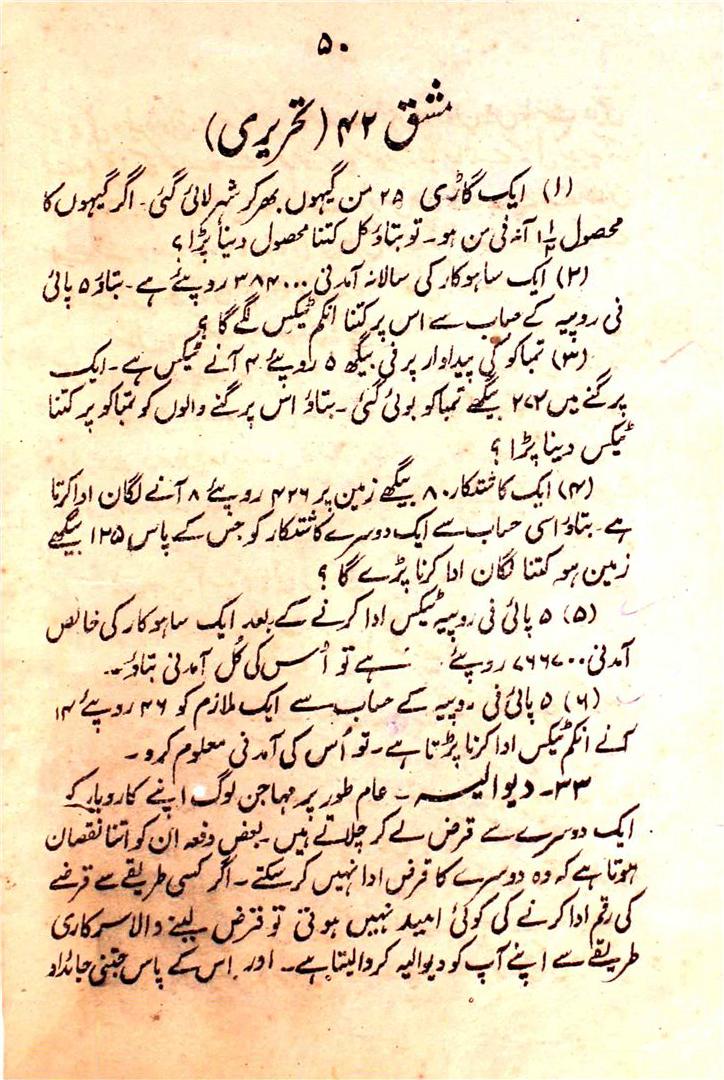 ۵۰
مشق ۴۲ (تحریری)
(۱) ایک گاڑی ۲۵ من گیہوں بھر کر شہر لائی گئی۔ اگر گیہوں کا
محصول ۱<sup>۱</sup>⁄<sub>۲</sub> آنہ فی من ہو۔ تو بتاؤ کل کتنا محصول دینا پڑا ؟
(۲) ایک ساہوکار کی سالانہ آمدنی ۳۸۴۰۰۰ روپئے ہے۔ بتاؤ ۵ پائی
فی روپیہ کے حساب سے اس پر کتنا انکم ٹیکس لگے گا ؟
(۳) تمباکو کی پیداوار پر فی بیگھ ۵ روپئے ۴ آنے ٹیکس ہے۔ ایک
پرگنے میں ۲۷۲ بیگھے تمباکو بوئی گئی۔ بتاؤ اس پرگنے والوں کو تمباکو پر کتنا
ٹیکس دینا پڑا ؟
(۴) ایک کاشتکار ۸۰ بیگھے زمین پر ۴۲۶ روپئے ۸ آنے لگان ادا کرتا
ہے۔ بتاؤ اسی حساب سے ایک دوسرے کاشتکار کو جس کے پاس ۱۲۵ بیگھے
زمین ہو کتنا لگان ادا کرنا پڑے گا ؟
(۵) ۵ پائی فی روپیہ ٹیکس ادا کرنے کے بعد ایک ساہوکار کی خالص
آمدنی ۷۶۶۷۰۰ روپئے ہے تو اُس کی کُل آمدنی بتاؤ۔
(۶) ۵ پائی فی روپیہ کے حساب سے ایک ملازم کو ۴۶ روپئے ۱۴
آنے انکم ٹیکس ادا کرنا پڑتا ہے۔ تو اُس کی آمدنی معلوم کرو۔
۳۳۔ دیوالیہ۔ عام طور پر مہاجن لوگ اپنے کاروبار کو
ایک دوسرے سے قرض لے کر چلاتے ہیں۔ بعض دفعہ ان کو اتنا نقصان
ہوتا ہے کہ وہ دوسرے کا قرض ادا نہیں کر سکتے۔ اگر کسی طریقے سے قرضے
کی رقم ادا کرنے کی کوئی امید نہیں ہوتی تو قرض لینے والا سرکاری
طریقے سے اپنے آپ کو دیوالیہ کروا لیتا ہے۔ اور اس کے پاس جتنی جائداد